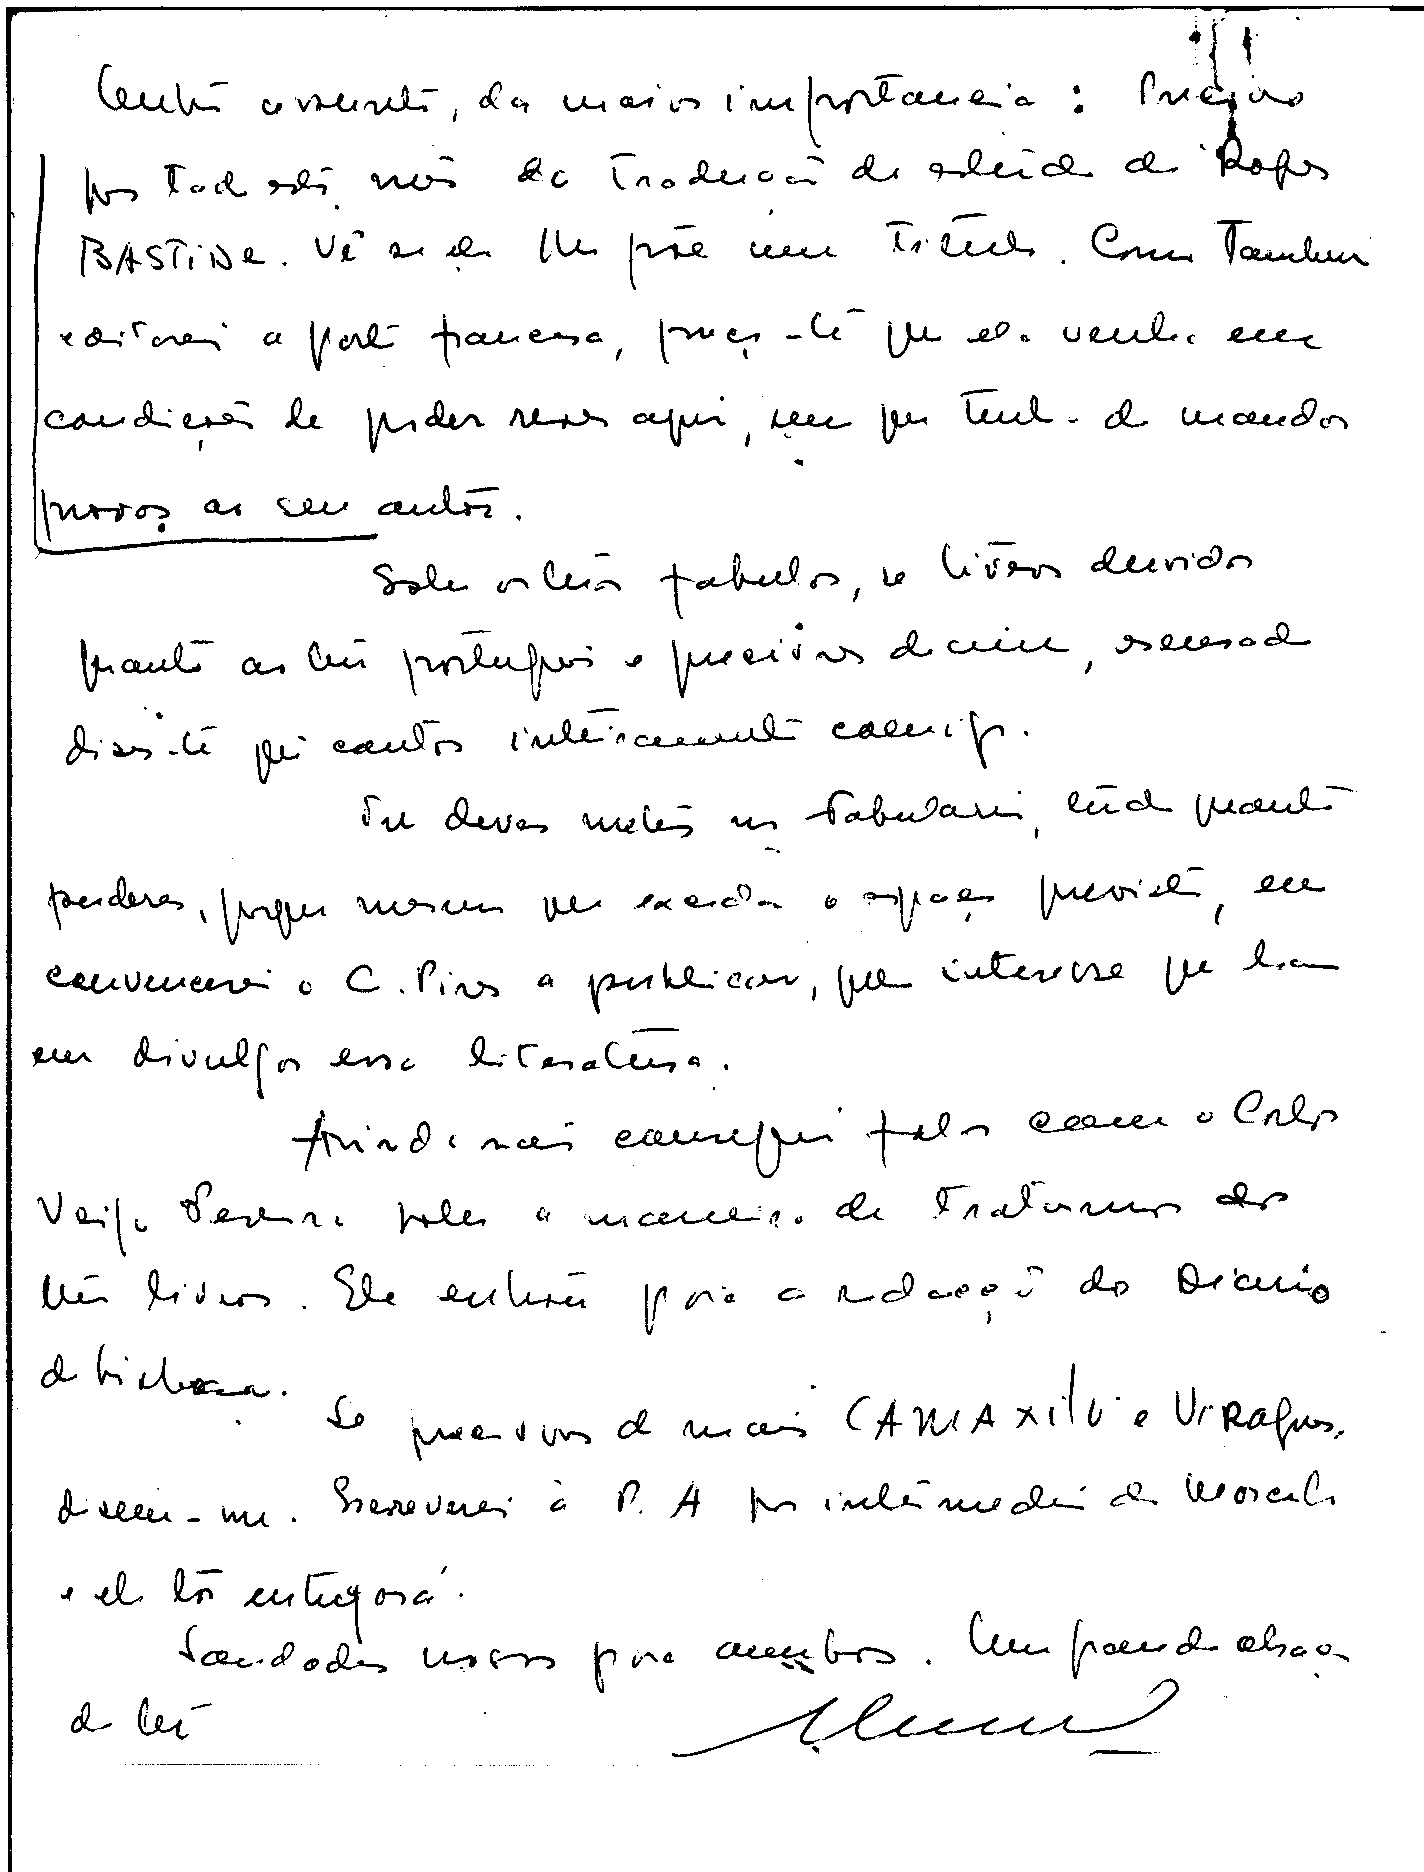 Outro assunto, da maior importancia: Preciso
por todo este mês da tradução do estudo do Roger
BASTIDE. Vê se ele lhe põe um título. Como tambem
editarei a parte francesa, peço-te que ela venha em
condições de poder rever aqui, sem que tenha de mandar
provas ao seu autor.
Sobre os teus trabalhos, se tiveres duvidas
quanto ao teu português e precisares de mim, escusado
dizer-te que contas inteiramente comigo.
Tu deves meter no Fabulario, tudo quanto
puderes, porque mesmo que exceda o espaço previsto, eu
convencerei o C. Pires a publicar, pelo interesse que ha
em divulgar essa literatura.
Ainda não consegui falar com o Carlos
Veiga Pereira sobre a maneira de tratarmos dos
teus livros. Ele entrou para a redacção do Diario
de Lisboa.
Se precisares de mais CAMAXILO e Viragens,
dizem-me. Escreverei à P. A por intermedio do
e ele tos entregará.
Saudades nossas para ambos. Um grande abraço
do teu